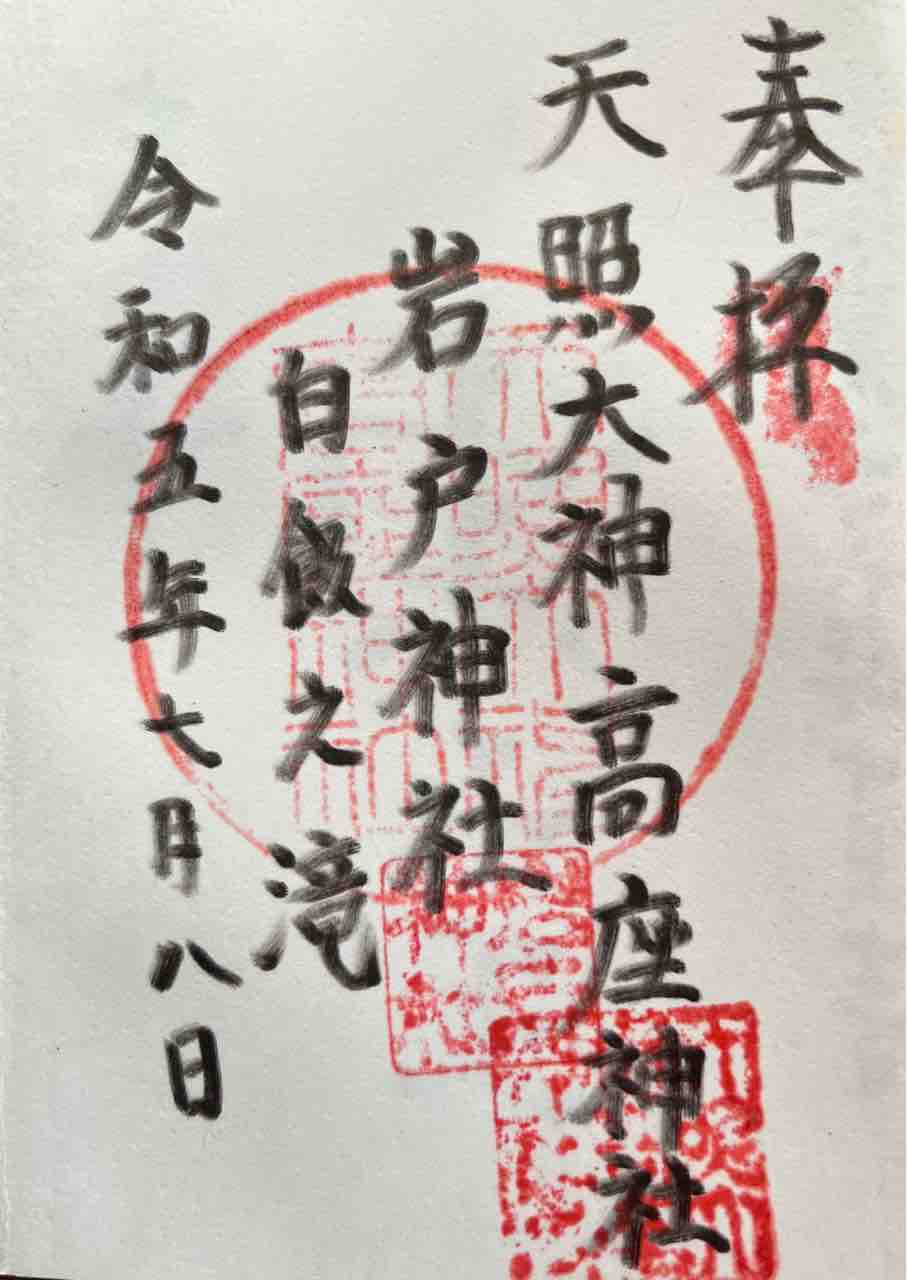 奉拝
天照大神高座神社
岩戸神社
白飯之滝
令和五年七月八日